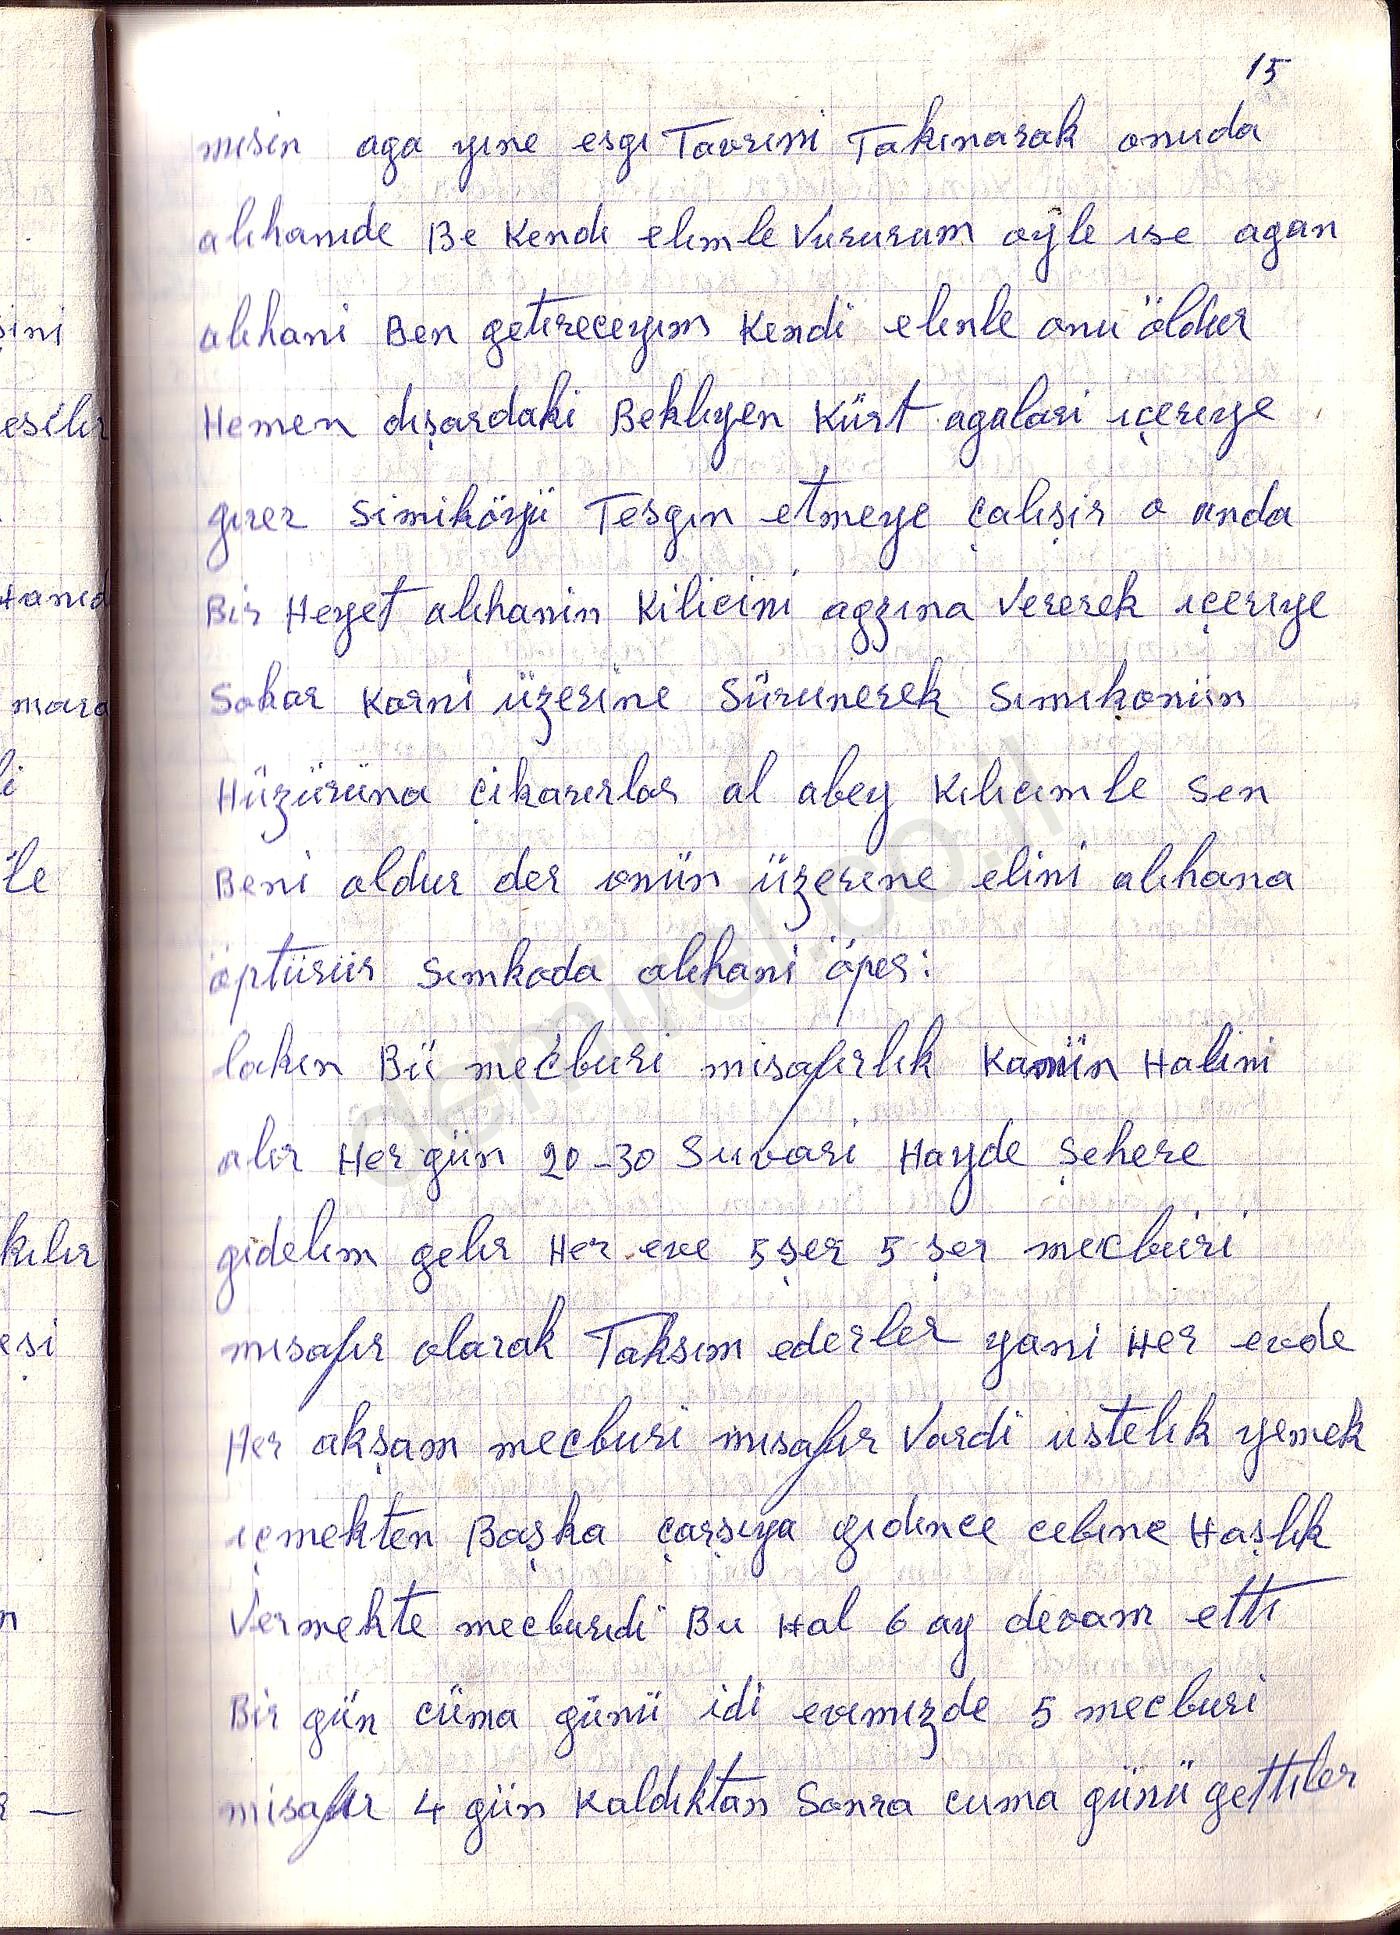 15
misin aga yıne esgı Tavrımı Takınarak onuda
alıhanıde Be Kendı elımle Vururum oyle ıse agan
alıhani Ben getıreceyım Kendi elınle onu öldur
Hemen dışardaki Beklıyen Kürt agalari ıçerıye
gırer Simiköyü Tesgın etmeye çalışir o anda
Bir Heyet alıhanin Kilicini agzına Vererek ıçerıye
Sokar Karni üzerıne Sürunerek Sımıkonün
Hüzürüna çikarırlar al abey Kılıcımle Sen
Beni oldur der onün üzerıne elini alıhana
öptürür Sımkoda alıhani öper:
lakın Bü mecburi misafırlık Kanün Halini
alır Her gün 20-30 Suvari Hayde Şehere
gidelım gelır Her eve 5 şer 5 şer mecbüri
mısafır olarak Taksım ederler yani Her evde
Her akşam mecburi mısafır Vardi ustelık yemek
ıçmekten Başka çarşıya gıdınce cebıne Haşlık
Vermekte mecburıdi Bu Hal 6 ay devam ettı
Bir gün cüma günü idi evımızde 5 mecburi
misafır 4 gün Kaldıktan Sonra cuma günü gettıler
şini
esilır
mara
li
ile
kılır
esi
n
demirel.co.il